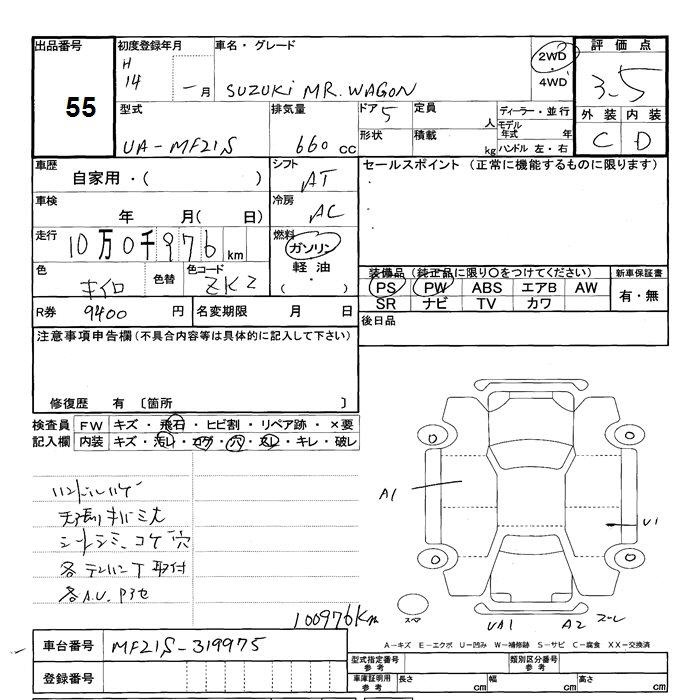 出品番号 初度登録年月 車名・グレード 2WD 4WD 評価点
55 H 14 - 月 SUZUKI MR. WAGON 3-5
型式 排気量 ドア 5 定員 人 ディーラー・並行 外装 内装
UA-MF21S 660 cc 形状 積載 kg モデル年式 年 ハンドル 左・右 C D
車歴 自家用・( ) シフト AT セールスポイント (正常に機能するものに限ります)
車検 年 月( 日) 冷房 AC
走行 10万0千976 km 燃料 ガソリン 軽油 ( ・ )
色 キイロ 色替 色コード ZKZ
装備品 (純正品に限り〇をつけてください) 新車保証書
PS PW ABS エアB AW 有・無
SR ナビ TV カワ
R券 9400 円 名変期限 月 日 後日品
注意事項申告欄(不具合内容等は具体的に記入して下さい)
修復歴 有 〔箇所 〕
検査員 FW キズ・飛石・ヒビ割・リペア跡・×要
記入欄 内装 キズ・汚レ・コゲ・穴・スレ・キレ・破レ
ハンドルハゲ
シートシミ、コゲ穴
100976Km
A1 U1
スペア UA1 A2
A-キズ E-エクボ U-凹み W-補修跡 S-サビ C-腐食 XX-交換済
車台番号 MF21S-319975
型式指定番号 参考 類別区分番号 参考
登録番号 車庫証明用 参考 長さ cm 幅 cm 高さ cm